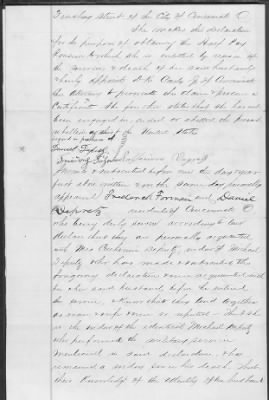 Street of the City of Cincinnati O
She makes this declaration
for the purpose of obtaining the Half Pay
Pension to which she is entitled by reason of
the services & death of her said husband
hereby appoints of Cincinnati
her Attorney to prosecute this claim & procure a
Certificate She further states that she has not
been engaged in, aided or abetted the present
rebellion against the United States
signed in presence of
Samuel
Catharine
Sworn & subscribed before me the day & year
first above written & on the same day personally
appeared Frederick Forman and Daniel
residents of Cincinnati O
who being duly sworn according to law
declare that they are personally acquainted
with Mrs Catharine widow of Michael
who has made & subscribed the
foregoing declaration, were acquainted with
her said husband before he entered
the service, & know that they lived together
as man & wife & were so reputed That she
is the widow of the identical Michael
who performed the military service
mentioned in said declaration & has
remained a widow since his death That
their knowledge of the identity of her husband